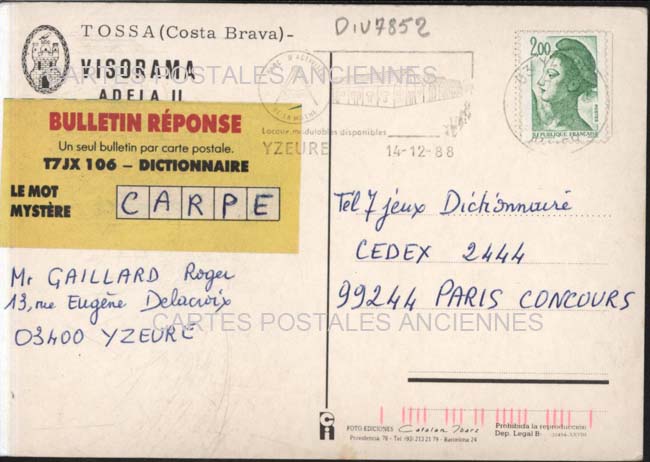 TOSSA (Costa Brava) -
VISORAMA
ADELA II
DIV7852
CARTES POSTALES ANCIENNES
2,00
POSTES
REPUBLIQUE FRANÇAISE
Locaux modulables disponibles
YZEURE
14-12-88
BULLETIN RÉPONSE
Un seul bulletin par carte postale.
T7JX 106 – DICTIONNAIRE
LE MOT
MYSTÈRE
CARPE
Mr GAILLARD Roger
13, rue Eugène Delacroix
03400 YZEURE
Tél 7 jeux Dictionnaire
CEDEX 2444
99244 PARIS CONCOURS
CARTES POSTALES ANCIENNES
FOTO EDICIONES Catalan Ibarz
Providencia, 76 - Tel. (93) 213 21 79 - Barcelona 24
Prohibida la reproducción
Dep. Legal B: